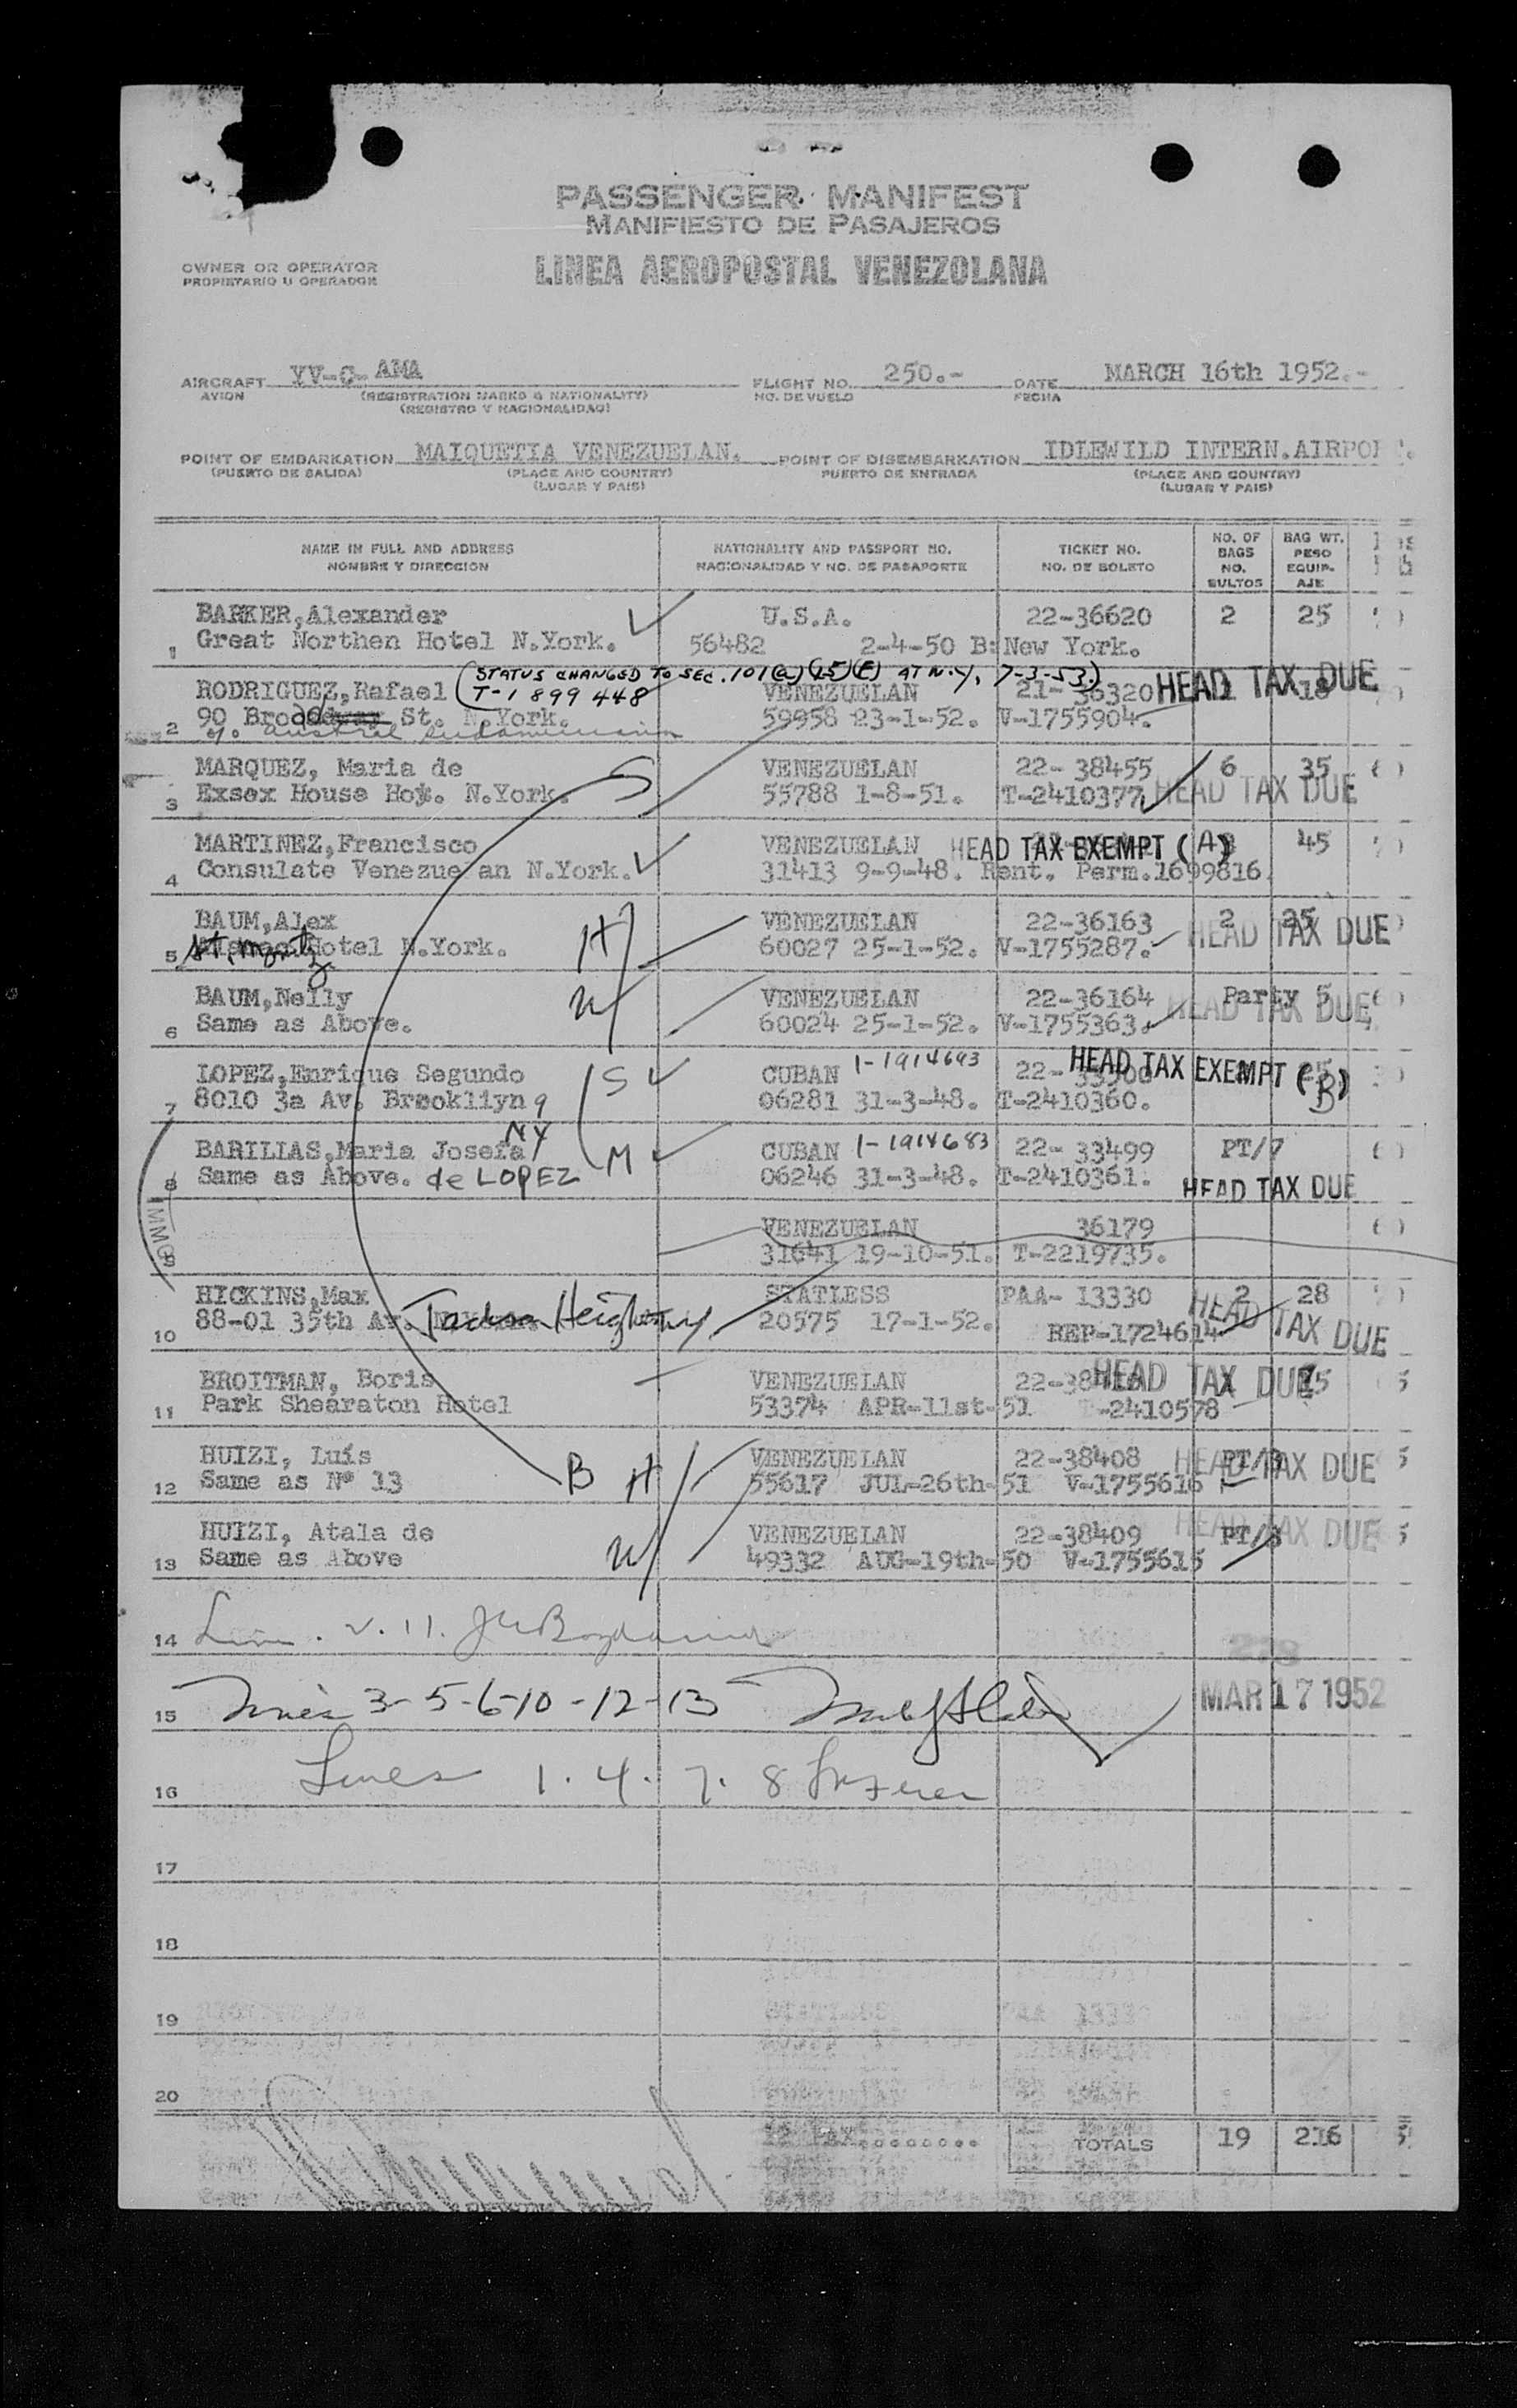 PASSENGER MANIFEST
MANIFIESTO DE PASAJEROS
OWNER OR OPERATOR
PROPIETARIO U OPERADOR
LINEA AEROPOSTAL VENEZOLANA
AIRCRAFT YV-C-AMA FLIGHT NO. 250.- DATE MARCH 16th 1952.-
AVION (REGISTRATION MARKS & NATIONALITY) NO. DE VUELO FECHA
(REGISTRO Y NACIONALIDAD)
POINT OF EMBARKATION MAIQUETIA VENEZUELAN. POINT OF DISEMBARKATION IDLEWILD INTERN.AIRPORT.
(PUERTO DE SALIDA) (PLACE AND COUNTRY) PUERTO DE ENTRADA (PLACE AND COUNTRY)
(LUGAR Y PAIS) (LUGAR Y PAIS)
NAME IN FULL AND ADDRESS NATIONALITY AND PASSPORT NO. TICKET NO. NO. OF BAGS BAG WT.
NOMBRE Y DIRECCION NACIONALIDAD Y NO. DE PASAPORTE NO. DE BOLETO NO. BULTOS PESO EQUIP-AJE
BARKER,Alexander U.S.A. 22-36620 2 25
1 Great Northen Hotel N.York. 56482 2-4-50 B:New York.
(STATUS CHANGED TO SEC. 101(a)(15)(E) AT N.Y, 7-3-53.)
RODRIGUEZ,Rafael T-1899448 VENEZUELAN 21-36320 HEAD TAX DUE
2 90 Broad St. N.York. 59958 23-1-52. V-1755904.
MARQUEZ, Maria de S VENEZUELAN 22-38455 6 35
3 Exsex House Hot. N.York. 55788 1-8-51. T-2410377 HEAD TAX DUE
MARTINEZ,Francisco VENEZUELAN HEAD TAX EXEMPT (A) 45
4 Consulate Venezuelan N.York. 31413 9-9-48. Rent. Perm.1699816.
BAUM,Alex H VENEZUELAN 22-36163 2 25
5 St. Moritz Hotel N.York. 60027 25-1-52. V-1755287. HEAD TAX DUE
BAUM,Nelly W VENEZUELAN 22-36164 Party 5
6 Same as Above. 60024 25-1-52. V-1755363. HEAD TAX DUE
LOPEZ,Enrique Segundo S CUBAN 1-1914693 22- HEAD TAX EXEMPT (B)
7 8010 3a Av. Brookliyn 9 NY 06281 31-3-48. T-2410360.
BARILIAS,Maria Josefa M CUBAN 1-1914683 22-33499 PT/7
8 Same as Above. de LOPEZ 06246 31-3-48. T-2410361. HEAD TAX DUE
VENEZUELAN 36179
9 31641 19-10-51. T-2219735.
IMMG
HICKINS,Max STATLESS PAA- 13330 2 28
10 88-01 35th Av. Jackson Heights NY 20575 17-1-52. REP-1724614 HEAD TAX DUE
BROITMAN, Boris VENEZUELAN 22-38 HEAD TAX DUE
11 Park Shearaton Hotel 53374 APR-11st-51 -2410578
HUIZI, Luís B H VENEZUELAN 22-38408 HEAD TAX DUE
12 Same as Nº 13 55617 JUL-26th-51 V-1755616
HUIZI, Atala de W VENEZUELAN 22-38409 PT/3 HEAD TAX DUE
13 Same as Above 49332 AUG-19th-50 V-1755615
14
15 Lines 3-5-6-10-12-13 MAR 17 1952
16 Lines 1. 4. 7. 8
17
18
19
20
TOTALS 19 216